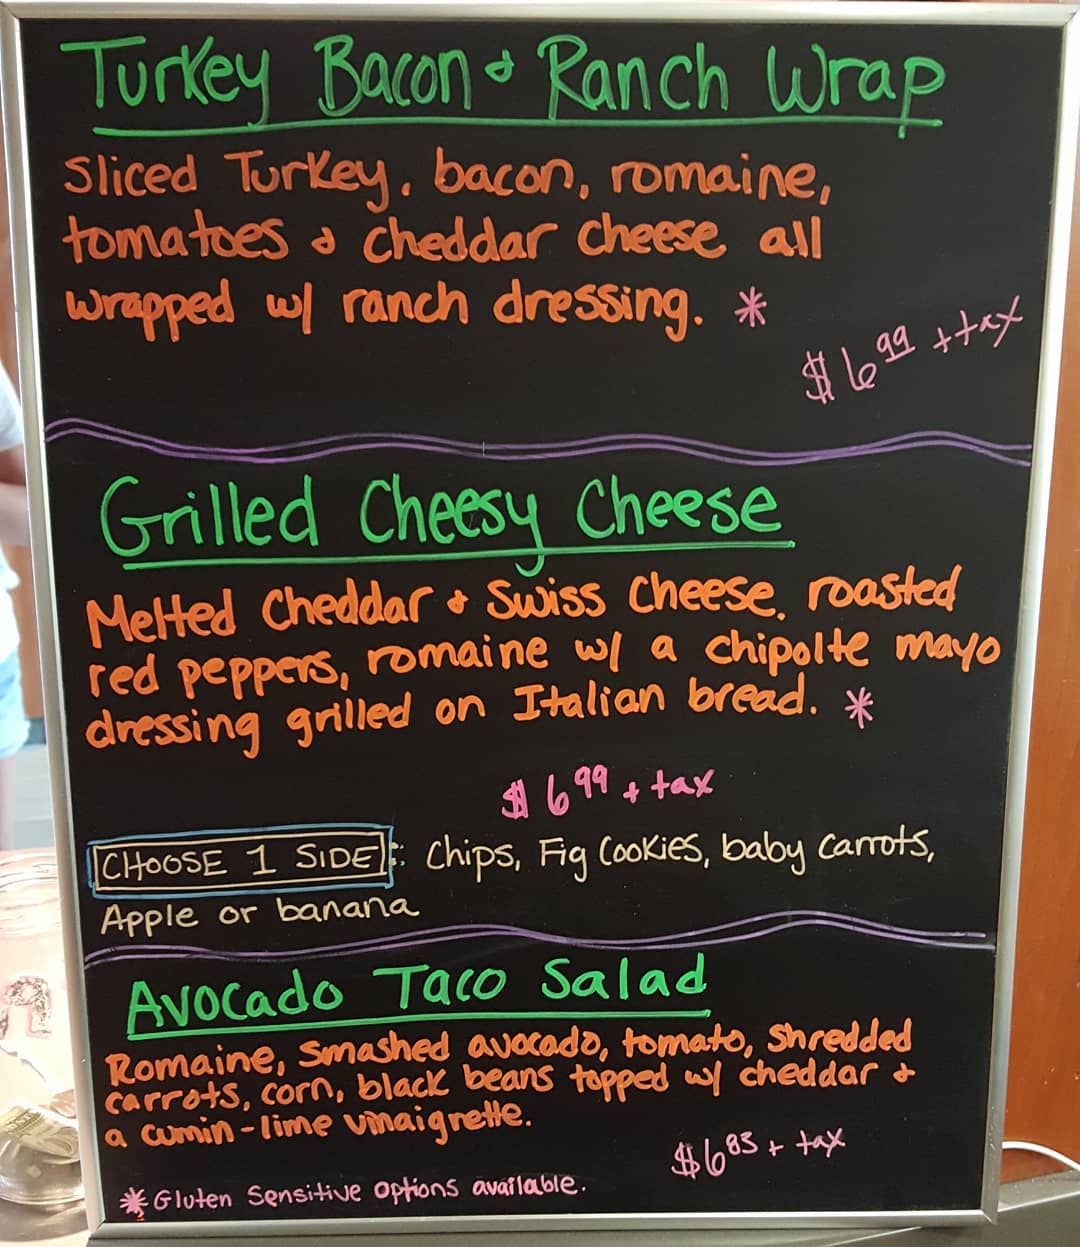 Turkey Bacon & Ranch Wrap
Sliced Turkey, bacon, romaine,
tomatoes & cheddar cheese all
wrapped w/ ranch dressing. *
$6.99 + tax
Grilled Cheesy Cheese
Melted Cheddar & Swiss Cheese, roasted
red peppers, romaine w/ a chipolte mayo
dressing grilled on Italian bread. *
$6.99 + tax
CHOOSE 1 SIDE: Chips, Fig Cookies, baby carrots,
Apple or banana
Avocado Taco Salad
Romaine, smashed avocado, tomato, shredded
carrots, corn, black beans topped w/ cheddar &
a cumin-lime vinaigrette.
$6.83 + tax
* Gluten Sensitive options available.